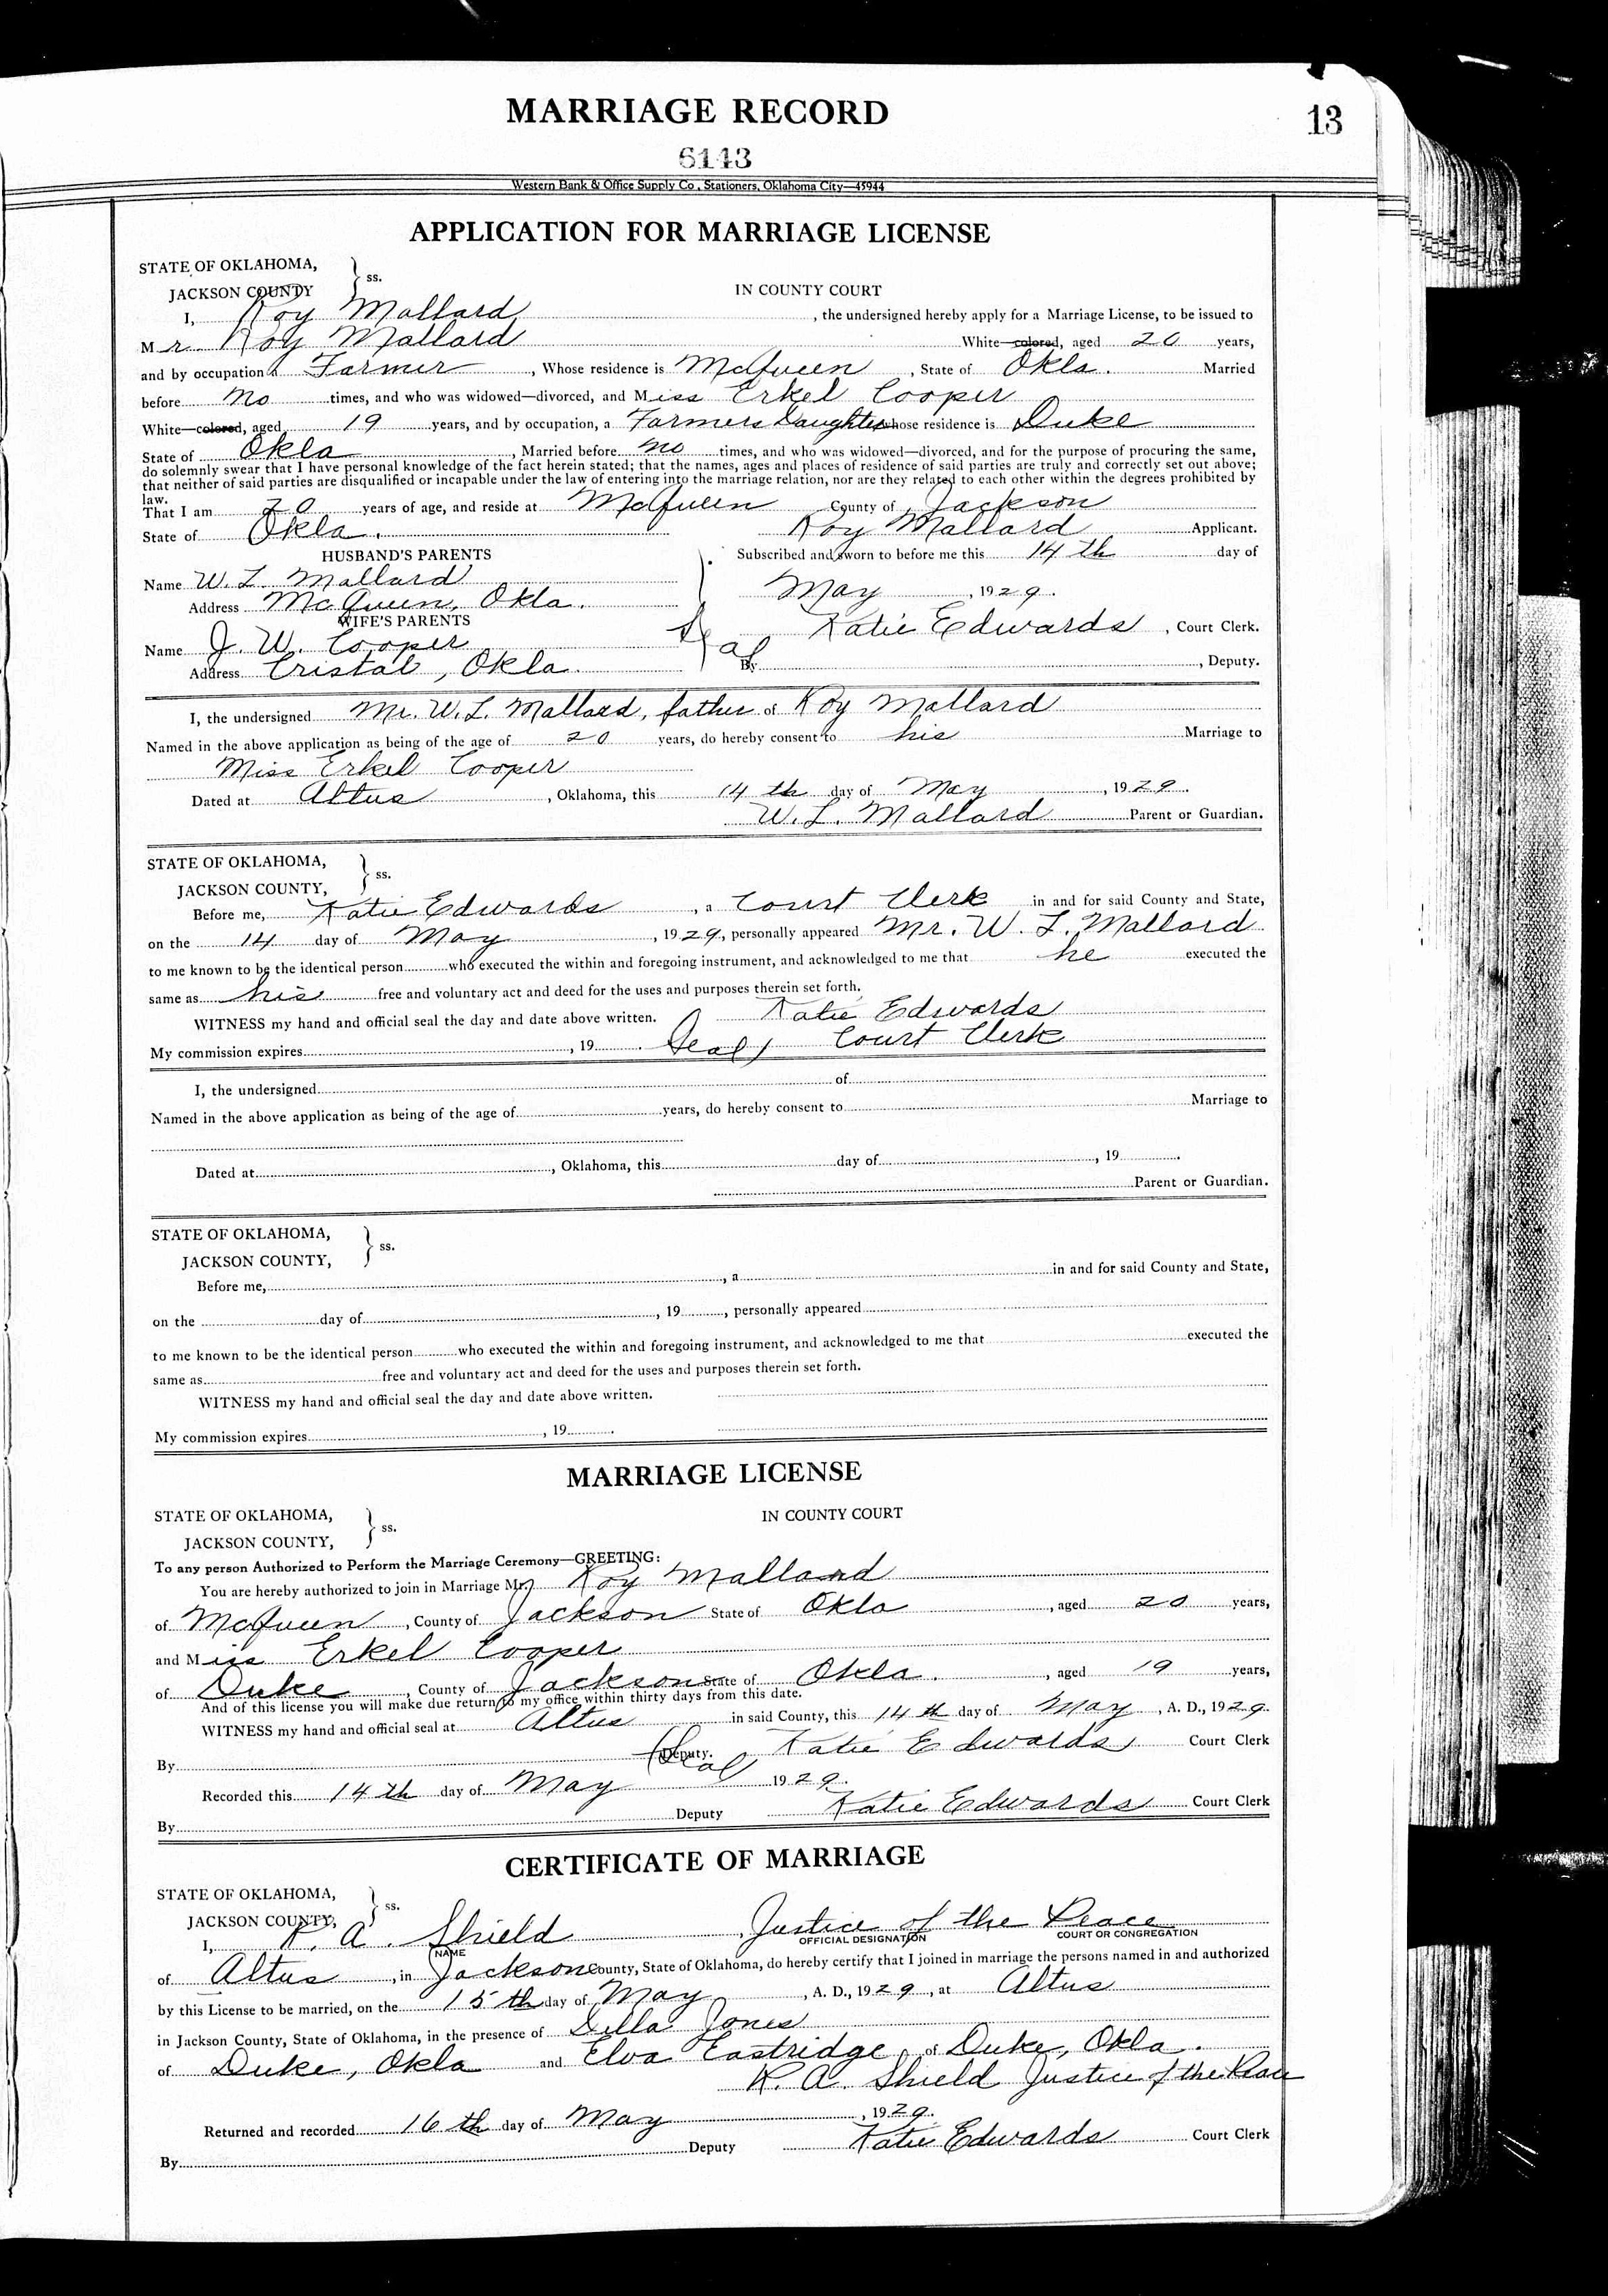 MARRIAGE RECORD
13
6143
Western Bank & Office Supply Co., Stationers, Oklahoma City—45944
APPLICATION FOR MARRIAGE LICENSE
STATE OF OKLAHOMA,
JACKSON COUNTY } ss.
IN COUNTY COURT
I, Roy Mallard, the undersigned hereby apply for a Marriage License, to be issued to
Mr. Roy Mallard White—colored, aged 20 years,
and by occupation a Farmer, Whose residence is McQueen, State of Okla. Married
before No times, and who was widowed—divorced, and Miss Erkel Cooper
White—colored, aged 19 years, and by occupation, a Farmers Daughter whose residence is Duke
State of Okla, Married before no times, and who was widowed—divorced, and for the purpose of procuring the same,
do solemnly swear that I have personal knowledge of the fact herein stated; that the names, ages and places of residence of said parties are truly and correctly set out above;
that neither of said parties are disqualified or incapable under the law of entering into the marriage relation, nor are they related to each other within the degrees prohibited by
law.
That I am 20 years of age, and reside at McQueen County of Jackson
State of Okla. Roy Mallard Applicant.
HUSBAND'S PARENTS
Subscribed and sworn to before me this 14th day of
Name W. L. Mallard
May, 1929.
Address McQueen, Okla.
WIFE'S PARENTS
Katie Edwards, Court Clerk.
Name J. W. Cooper
Seal
Address Cristal, Okla.
By, Deputy.
I, the undersigned Mr. W. L. Mallard, father of Roy Mallard
Named in the above application as being of the age of 20 years, do hereby consent to his Marriage to
Miss Erkel Cooper
Dated at Altus, Oklahoma, this 14th day of May, 1929.
W. L. Mallard Parent or Guardian.
STATE OF OKLAHOMA,
JACKSON COUNTY, } ss.
Before me, Katie Edwards, a Court Clerk in and for said County and State,
on the 14 day of May, 1929, personally appeared Mr. W. L. Mallard
to me known to be the identical person who executed the within and foregoing instrument, and acknowledged to me that he executed the
same as his free and voluntary act and deed for the uses and purposes therein set forth.
WITNESS my hand and official seal the day and date above written. Katie Edwards
My commission expires, 19 Seal) Court Clerk
I, the undersigned of
Named in the above application as being of the age of years, do hereby consent to Marriage to
Dated at, Oklahoma, this day of, 19.
Parent or Guardian.
STATE OF OKLAHOMA,
JACKSON COUNTY, } ss.
Before me,, a in and for said County and State,
on the day of, 19, personally appeared
to me known to be the identical person who executed the within and foregoing instrument, and acknowledged to me that executed the
same as free and voluntary act and deed for the uses and purposes therein set forth.
WITNESS my hand and official seal the day and date above written.
My commission expires, 19.
MARRIAGE LICENSE
STATE OF OKLAHOMA,
JACKSON COUNTY, } ss.
IN COUNTY COURT
To any person Authorized to Perform the Marriage Ceremony—GREETING:
You are hereby authorized to join in Marriage Mr. Roy Mallard
of McQueen, County of Jackson State of Okla, aged 20 years,
and Miss Erkel Cooper
of Duke, County of Jackson State of Okla., aged 19 years,
And of this license you will make due return to my office within thirty days from this date.
WITNESS my hand and official seal at Altus in said County, this 14th day of May, A. D., 1929.
By Deputy. (Seal Katie Edwards Court Clerk
Recorded this 14th day of May 1929.
By Deputy Katie Edwards Court Clerk
CERTIFICATE OF MARRIAGE
STATE OF OKLAHOMA,
JACKSON COUNTY, } ss.
I, R. A. Shield, Justice of the Peace
NAME OFFICIAL DESIGNATION COURT OR CONGREGATION
of Altus, in Jackson County, State of Oklahoma, do hereby certify that I joined in marriage the persons named in and authorized
by this License to be married, on the 15th day of May, A. D., 1929, at Altus
in Jackson County, State of Oklahoma, in the presence of Della Jones
of Duke, Okla and Elva Eastridge, of Duke, Okla.
R. A. Shield Justice of the Peace
Returned and recorded 16th day of May, 1929.
By Deputy Katie Edwards Court Clerk